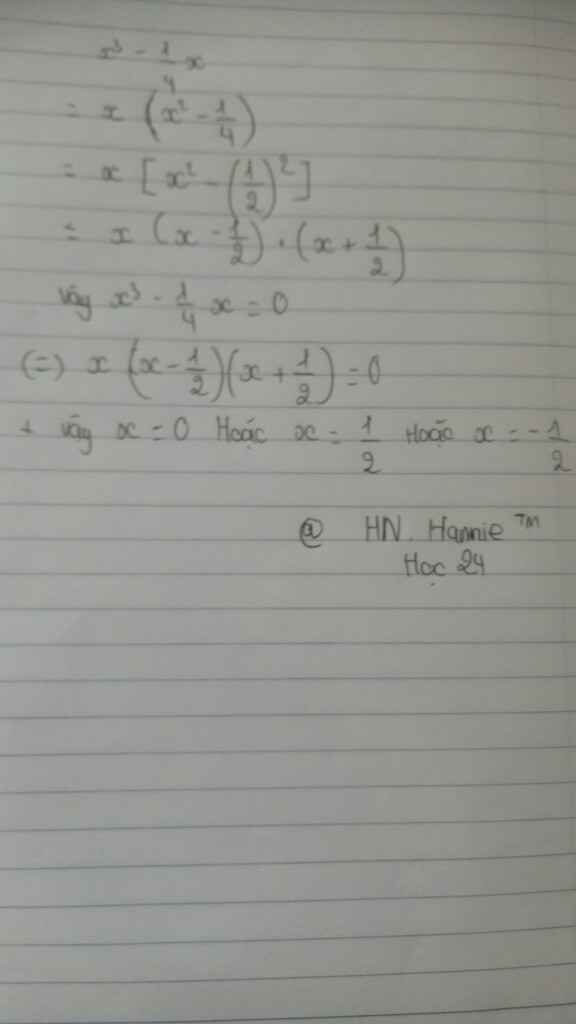 x³ - 1/4 x
= x (x² - 1/4)
= x [x² - (1/2)²]
= x (x - 1/2) . (x + 1/2)
Vậy x³ - 1/4 x = 0
(=) x (x - 1/2)(x + 1/2) = 0
+ Vậy x = 0 Hoặc x = 1/2 Hoặc x = -1/2
@ HN. Hannie ™
Học 24